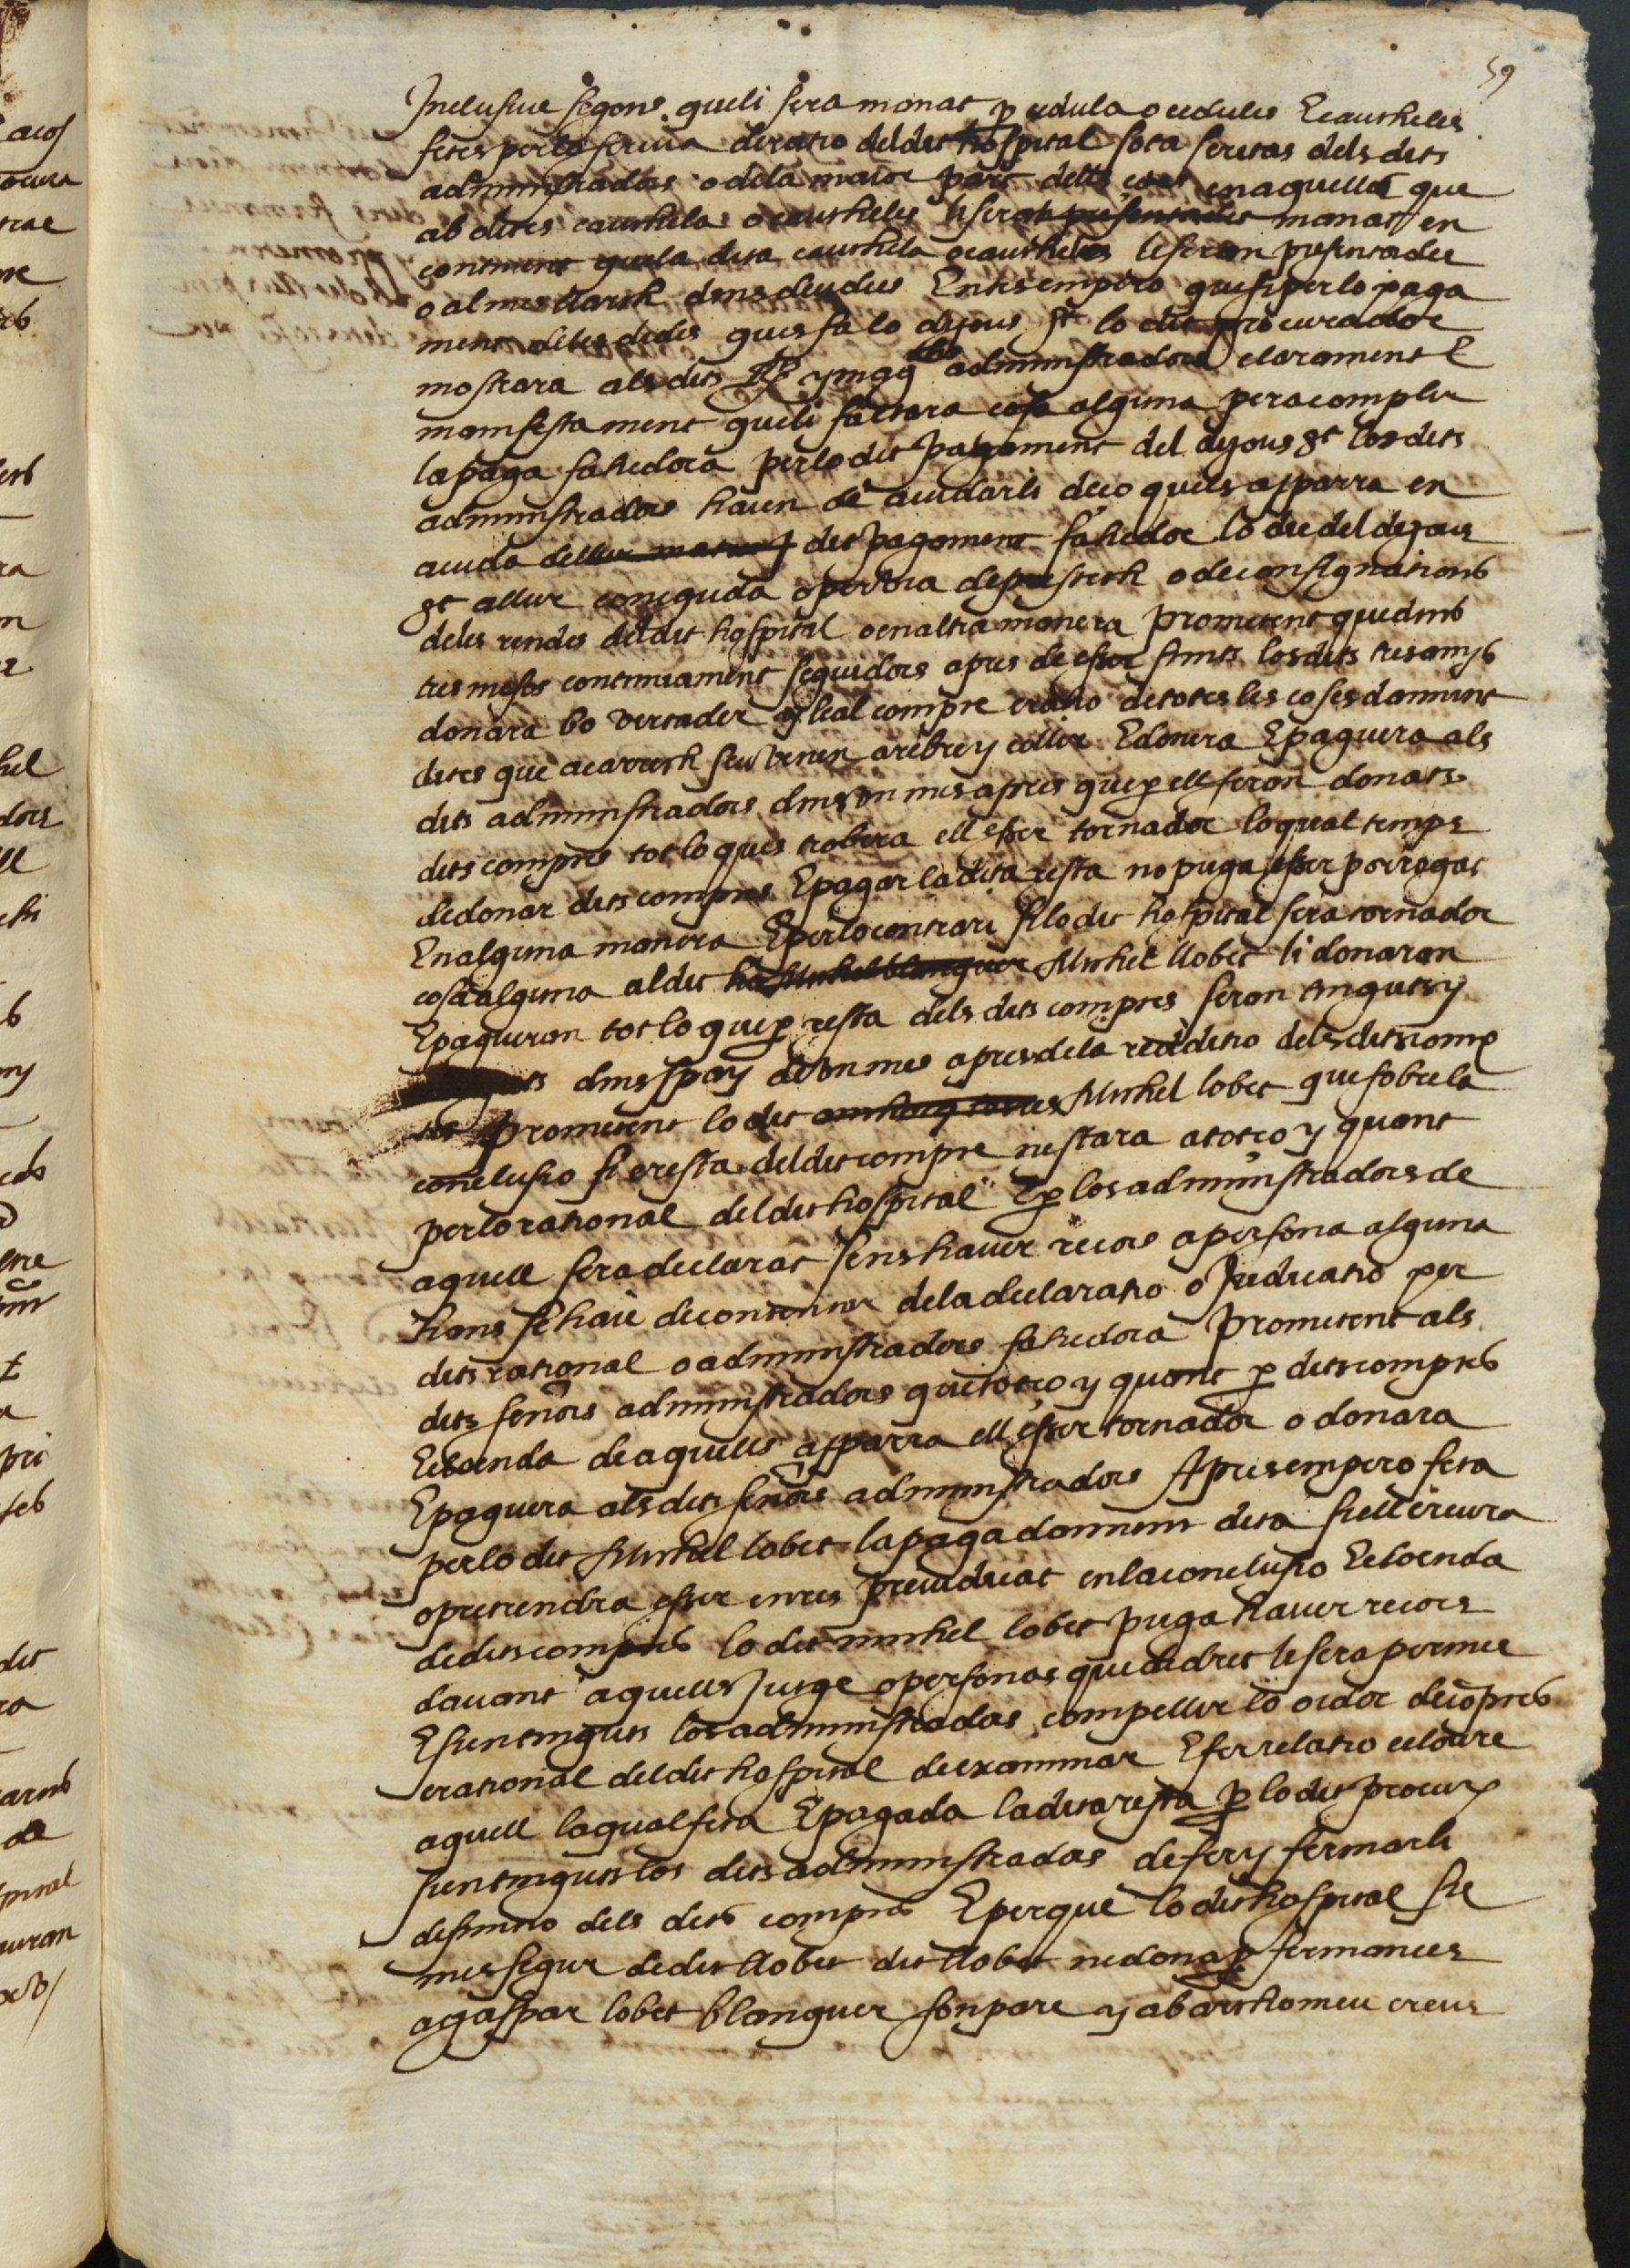 59
Inclusiue segons queli sera manat p cedula o cedules E cautheles
fetes per lo scriva de ratio del dit hospital sots scritas dels dits
administradors o dela maior part dells enaquella que
ab dites cauthela o cautheles li sera presentades manat en
continent quela dita cauthela o cautheles li seran presentades
o al mes llarch dins deu dies Entes empero que si per lo paga
ment deles dides ques fa lo dijous st lo dit procurador
mostrara als dits administradors clarament E
manifestament queli faltara cosa alguna per acomplir
la paga fahedora per lo dit pagament del dijous st los dits
administradors hauen de aiudarli de ço quels apparra en
aiuda dellur dit pagament fahedor lo die del dijous
st a llur coneguda o per via de prestech o de consignations
deles rendes del dit hospital o en altra manera prometent que dins
tres mesos continuament seguidors apres de esser finits los dits tres anys
donara bo vertader y leal compte e ratio de totes les coses damunt
dites que a carrech seu venen a rebre y collir E donera E paguera als
dits administradors dins vn mes apres que p ell seran donats
dits comptes tot lo ques trobera ell esser tornador lo qual temps
de donar dits comptes E pagar la dita resta no puga esser porrogat
En alguna manera E per lo contrari si lo dit hospital sera tornador
cosa alguna al dit Michel blanquer Michel llobet li donaran
E pagueran tot lo que p resta dels dits comptes seran tinguts y
dins spay de vn mes apres dela redditio dels dits comp
tes prometent lo dit Michel lobet que sobre la
conclusio fi e resta del dit compte ne stara a tot ço y quant
per lo rational del dit hospital E p los administradors de
aquell sera declarat sens hauer recors a persona alguna
hans se haie de contentar dela declaratio o Judicatio per
dits rational o administradors fahedora prometent als
dits senors administradors que tot ço y quant p dits comptes
E cloenda de aquells apparra ell esser tornador o donara
E paguera als dits senors administradors Apres empero feta
per lo dit Michel lobet la paga damunt dita si ell creura
o pretendra esser en res preiudicat en la conclusio E cloenda
de dits comptes lo dit michel lobet puga hauer recors
dauant aquells Jutge o persones que de dret li sera permes
E sien tinguts los administradors compellir lo oidor de comptes
e rational del dit hospital de examinar E fer relatio e cloure
aquell laqual feta E pagada la dita resta p lo dit procur
sien tinguts los dits administradors de fer y fermarli
difinitio dels dits comptes E perque lo dit hospital sie
mes segur de dit llobet dit llobet ne dona p fermances
a gaspar lobet blanquer son pare y a barthomeu creus